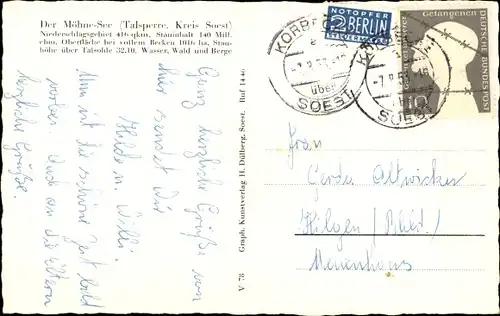 Der Möhne-See (Talsperre, Kreis Soest)
Niederschlagsgebiet 416 qkm, Stauinhalt 140 Mill.
cbm, Oberfläche bei vollem Becken 1016 ha, Stau-
höhe über Talsohle 32.10. Wasser, Wald und Berge
Ganz herzliche Grüße von
hier sendet Dir
Hilde u. Willi.
Nun ist die schöne Zeit bald
vorbei. Auch an die Eltern
herzliche Grüße.
V 78 Graph. Kunstverlag H. Dülberg, Soest. Ruf 1446
NOTOPFER
2 BERLIN
STEUERMARKE
Gefangenen
DEUTSCHE BUNDESPOST
10
über
SOEST
über
SOEST
Frau
Gerda Altwicker
Hilgen / Rhld. /
Neuenhaus